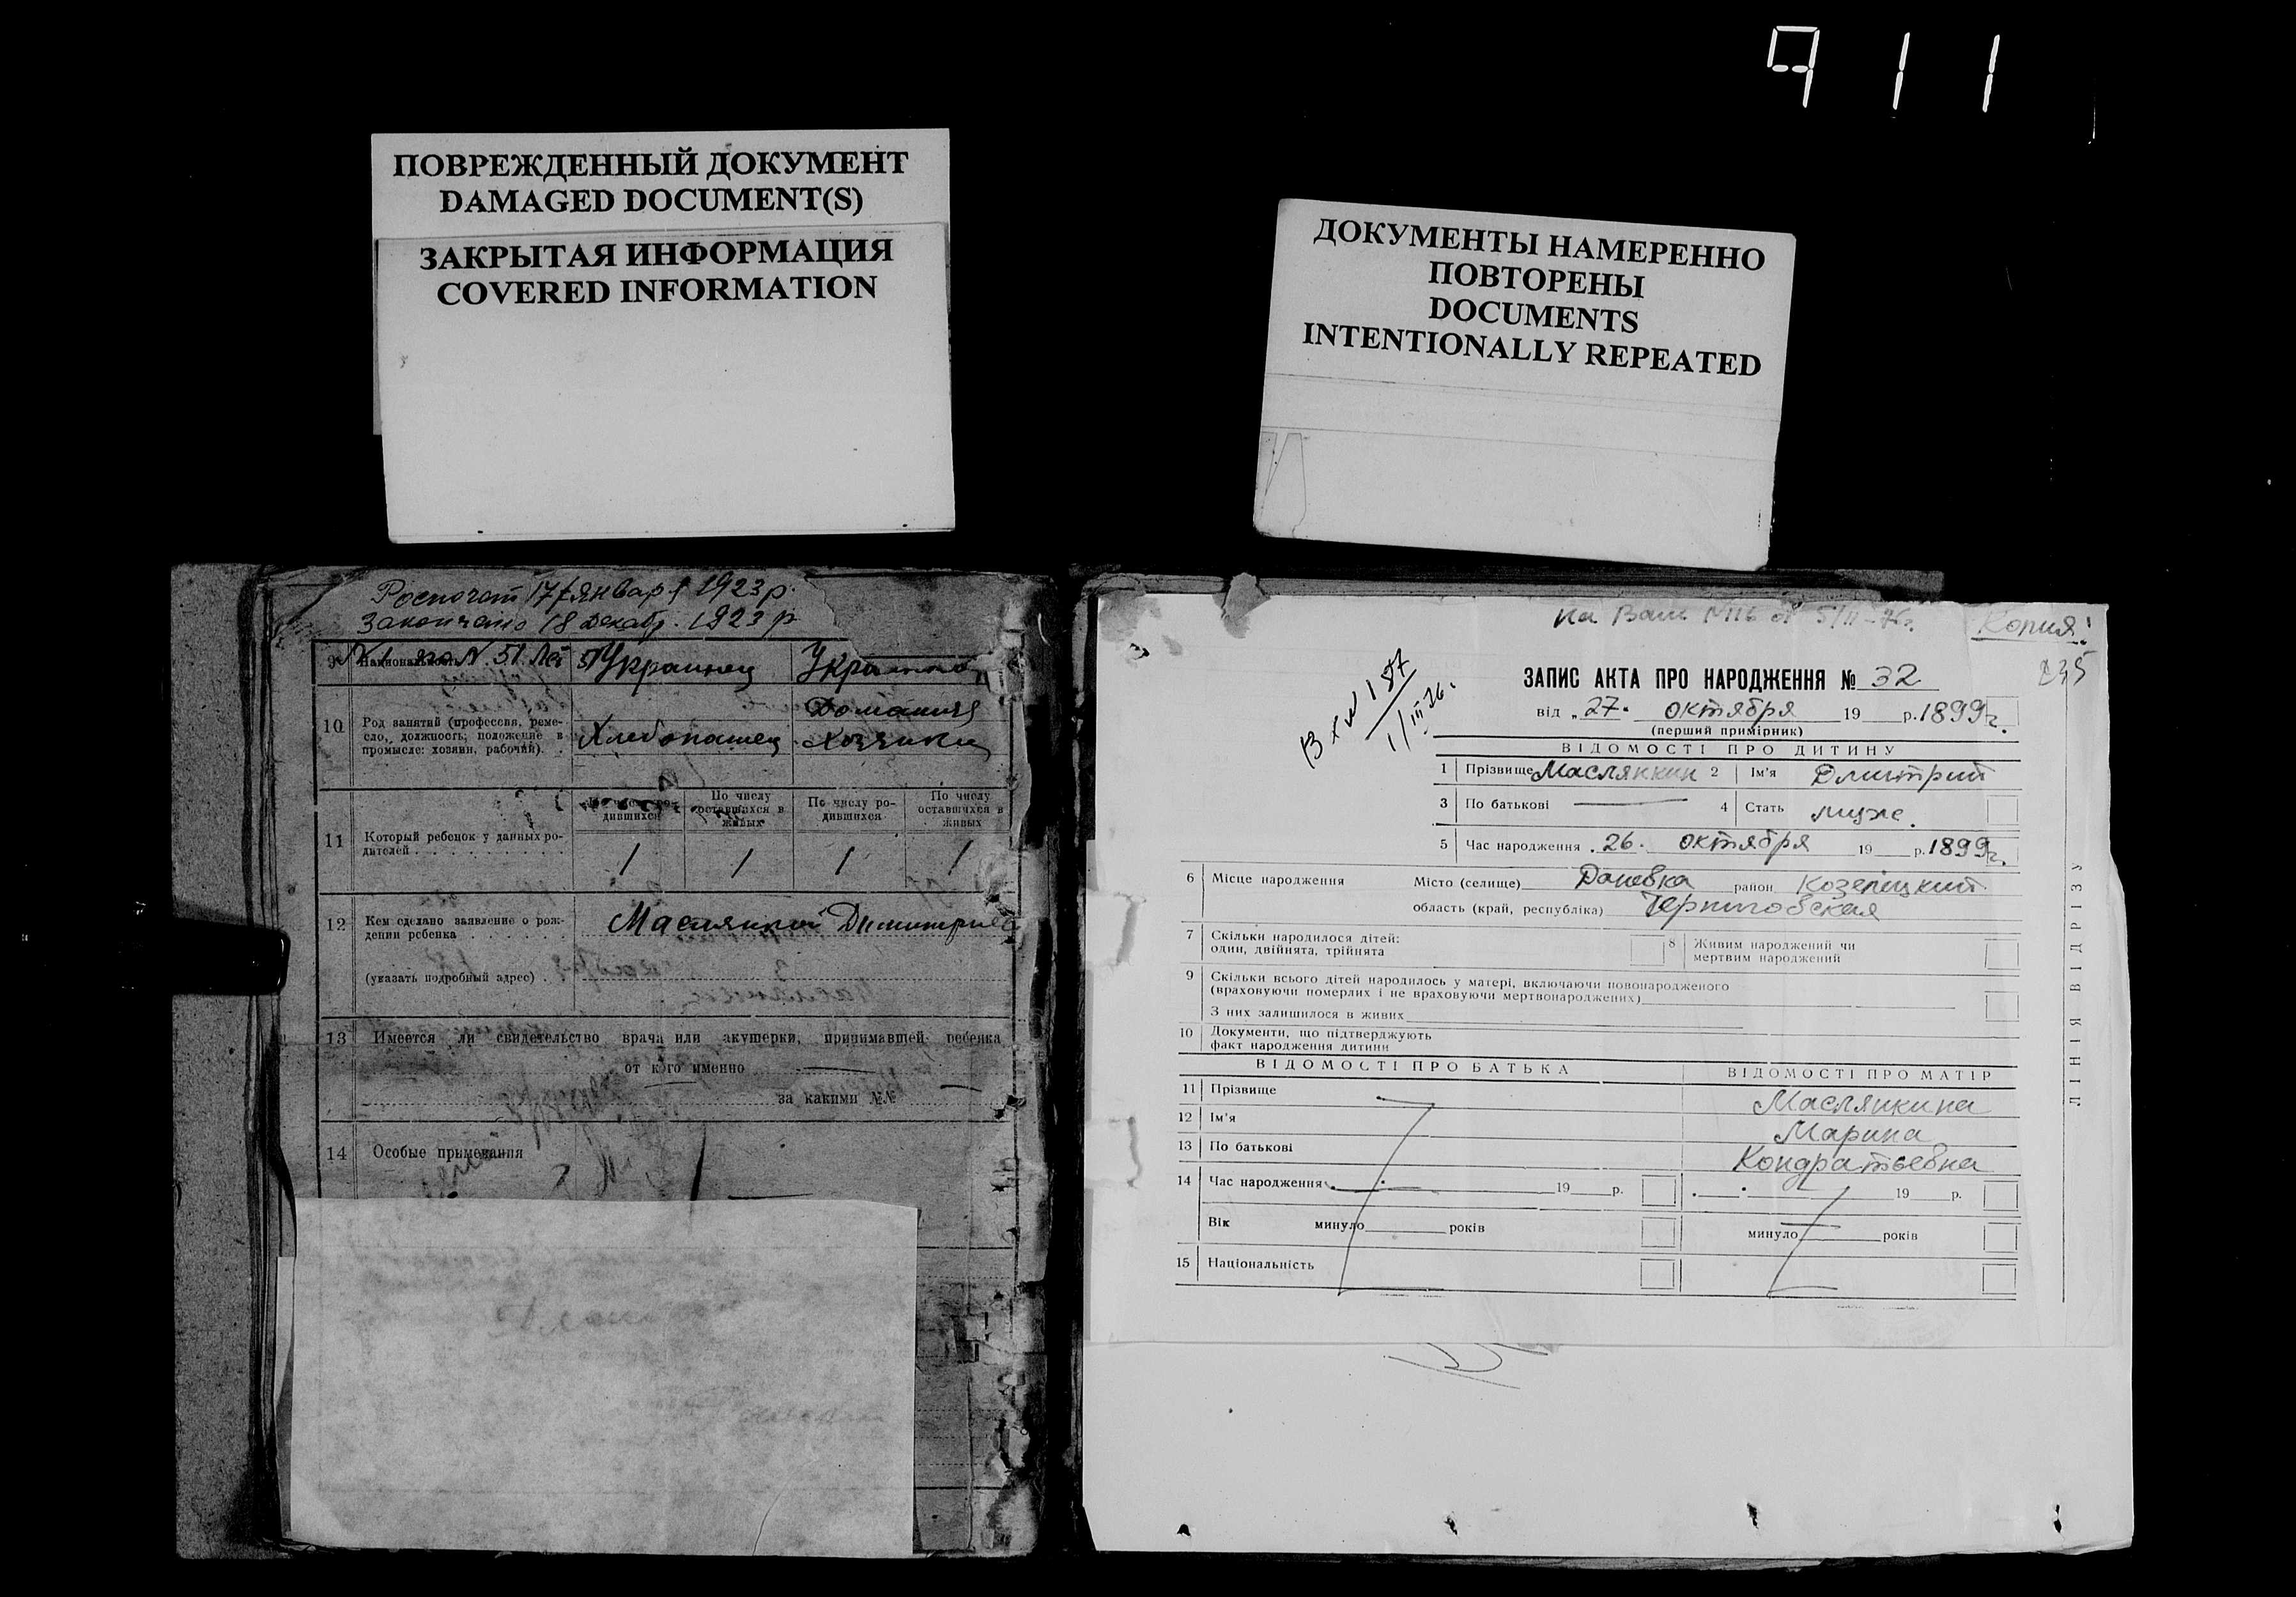 911
ПОВРЕЖДЕННЫЙ ДОКУМЕНТ
DAMAGED DOCUMENT(S)
ЗАКРЫТАЯ ИНФОРМАЦИЯ
COVERED INFORMATION
ДОКУМЕНТЫ НАМЕРЕННО
ПОВТОРЕНЫ
DOCUMENTS
INTENTIONALLY REPEATED
Роспочат 17 января 1923 р.
Закончено 18 Декабр. 1923 р
9 Национальность Украинец
10 Род занятий (профессия, реме-
сло, должность, положение в
промысле: хозяин, рабочий).
Хлебопашец
Домашня
Хозяйка
11 Который ребенок у данных ро-
дителей
По числу ро-
дившихся
По числу
оставшихся в
живых
По числу ро-
дившихся
По числу
оставшихся в
живых
1 1 1 1
12 Кем сделано заявление о рож-
дении ребенка
(указать подробный адрес)
13 Имеется ли свидетельство врача или акушерки, принимавшей ребенка
от кого именно
за какими №№
14 Особые примечания
На Ваш №116 от 5/II-76г.
Копия!
235
Вх №187
1/III-76г.
ЗАПИС АКТА ПРО НАРОДЖЕННЯ № 32
від „27. октября 19 р. 1899г.
(перший примірник)
ВІДОМОСТІ ПРО ДИТИНУ
1 Прізвище Маслянкин 2 Ім'я Дмитрий
3 По батькові 4 Стать муж.
5 Час народження 26. октября 19 р. 1899г.
6 Місце народження Місто (селище) Даневка район Козелецкий
область (край, республіка) Черниговская
7 Скільки народилося дітей:
один, двійнята, трійнята
8 Живим народжений чи
мертвим народжений
9 Скільки всього дітей народилось у матері, включаючи новонародженого
(враховуючи померлих і не враховуючи мертвонароджених)
З них залишилося в живих
10 Документи, що підтверджують
факт народження дитини
ВІДОМОСТІ ПРО БАТЬКА ВІДОМОСТІ ПРО МАТІР
11 Прізвище Маслянкина
12 Ім'я Марина
13 По батькові Кондратьевна
14 Час народження 19 р. 19 р.
Вік минуло років минуло років
15 Національність
ЛІНІЯ ВІДРІЗУ